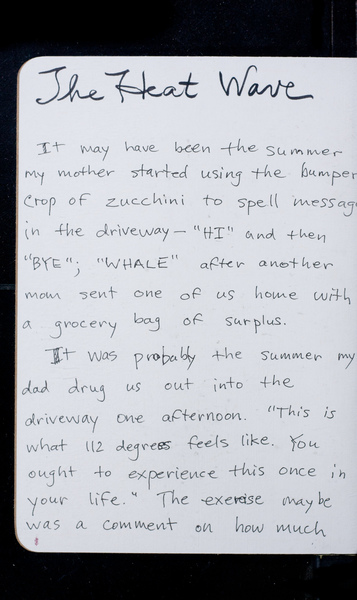 The Heat Wave
It may have been the summer
my mother started using the bumper
crop of zucchini to spell message
in the driveway — "HI" and then
"BYE"; "WHALE" after another
mom sent one of us home with
a grocery bag of surplus.
It was probably the summer my
dad drug us out into the
driveway one afternoon. "This is
what 112 degrees feels like. You
ought to experience this once in
your life." The exercise maybe
was a comment on how much